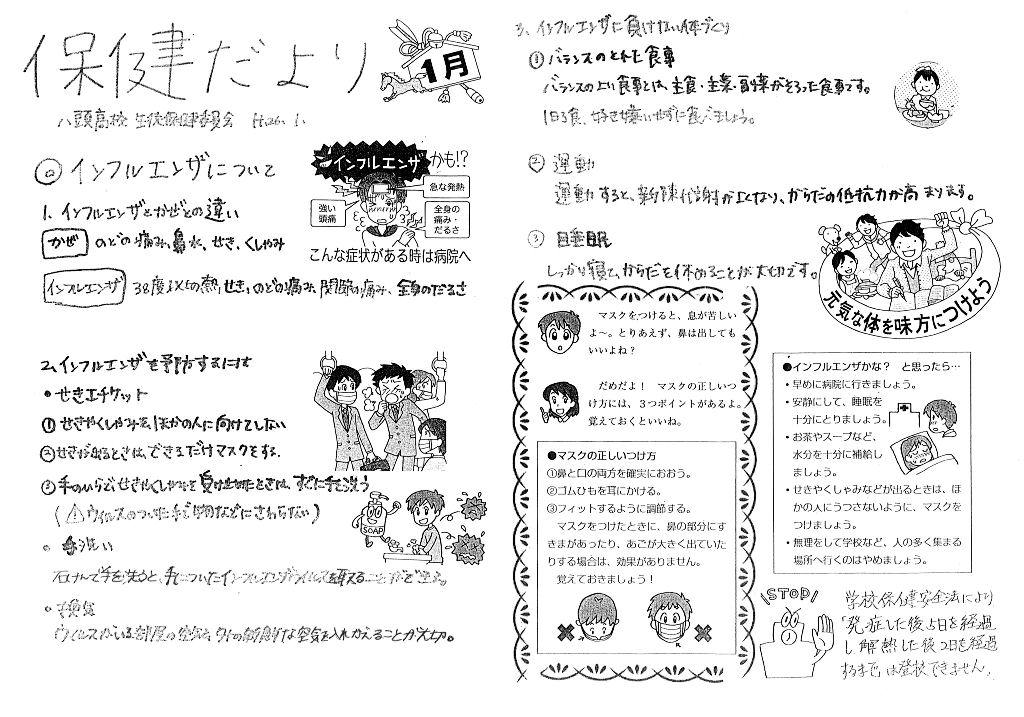 保健だより
1月
八頭高校 生徒保健委員会 H26.1.
◎ インフルエンザについて
インフルエンザかも!?
急な発熱
強い頭痛
全身の痛み・だるさ
こんな症状がある時は病院へ
1. インフルエンザとかぜとの違い
かぜ のどの痛み、鼻水、せき、くしゃみ
インフルエンザ 38度以上の熱、せき、のどの痛み、関節の痛み、全身のだるさ
2、インフルエンザを予防するには
• せきエチケット
① せきやくしゃみを、ほかの人に向けてしない
② せきが出るときは、できるだけマスクをする。
③ 手のひらでせきやくしゃみを受け止めたときは、すぐに手を洗う
(⚠ウイルスのついた手で物などにさわらない)
SOAP
• 手洗い
石けんで手を洗うと、手についたインフルエンザウイルスを
• 換気
ウイルスがいる部屋の空気を、外の新鮮な空気と入れかえることが大切。
3、インフルエンザに負けない体づくり
① バランスのとれた食事
バランスのよい食事とは、主食・主菜・副菜がそろった食事です。
1日3食、好き嫌いせずに食べましょう。
② 運動
運動すると、新陳代謝がよくなり、からだの抵抗力が高まります。
③ 睡眠
しっかり寝て、からだを休めることが大切です。
元気な体を味方につけよう
マスクをつけると、息が苦しい
よ〜。とりあえず、鼻は出しても
いいよね？
だめだよ！ マスクの正しいつ
け方には、３つポイントがあるよ。
覚えておくといいね。
●マスクの正しいつけ方
①鼻と口の両方を確実におおう。
②ゴムひもを耳にかける。
③フィットするように調節する。
マスクをつけたときに、鼻の部分にす
きまがあったり、あごが大きく出ていた
りする場合は、効果がありません。
覚えておきましょう！
●インフルエンザかな？ と思ったら…
・早めに病院に行きましょう。
・安静にして、睡眠を
十分にとりましょう。
・お茶やスープなど、
水分を十分に補給し
ましょう。
・せきやくしゃみなどが出るときは、ほ
かの人にうつさないように、マスクを
つけましょう。
・無理をして学校など、人の多く集まる
場所へ行くのはやめましょう。
STOP
学校保健安全法により
「発症した後5日を経過
し解熱した後2日を経過
するまで」は登校できません。